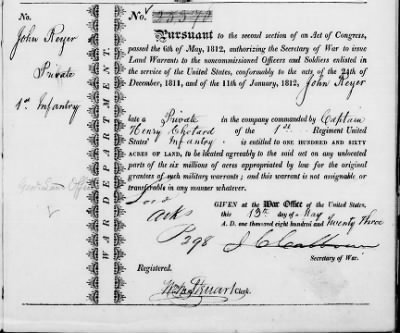 No.
John Reyer
Private
1st Infantry
WAR DEPARTMENT.
No.
Pursuant to the second section of an Act of Congress,
passed the 6th of May, 1812, authorizing the Secretary of War to issue
Land Warrants to the noncommissioned Officers and Soldiers enlisted in
the service of the United States, conformably to the acts of the 24th of
December, 1811, and of the 11th of January, 1812, John Reyer
late a Private in the company commanded by Captain
Henry Chotard of the 1st Regiment United
States' Infantry is entitled to ONE HUNDRED AND SIXTY
ACRES OF LAND, to be located agreeably to the said act on any unlocated
parts of the six millions of acres appropriated by law for the original
grantees of such military warrants; and this warrant is not assignable or
transferable in any manner whatever.
GIVEN at the War Office of the United States,
this 13th day of May
A. D. one thousand eight hundred and Twenty Three
Arks
P298
J C Calhoun
Secretary of War.
Registered.
Stuart Clerk.